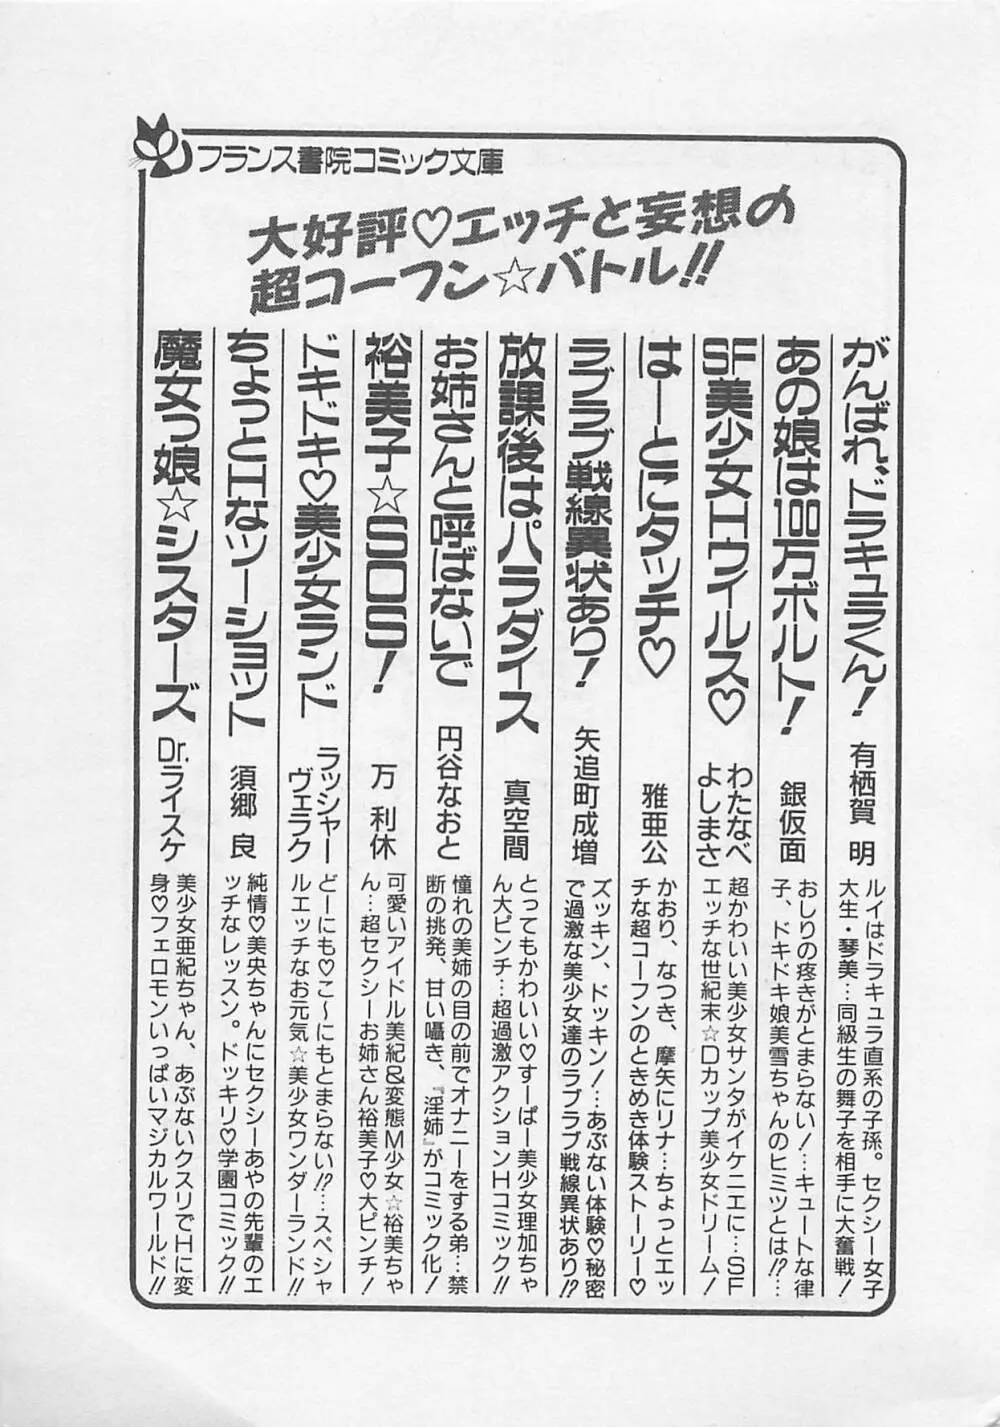 フランス書院コミック文庫
大好評♡エッチと妄想の
超コーフン☆バトル!!
がんばれ、ドラキュラくん! 有栖賀 明
ルイはドラキュラ直系の子孫。セクシー女子
大生・琴美…同級生の舞子を相手に大奮戦!
あの娘は100万ボルト! 銀仮面
おしりの疼きがとまらない!…キュートな律
子、ドキドキ娘美雪ちゃんのヒミツとは!?…
SF美少女Hウイルス♡ わたなべ
よしまさ
超かわいい美少女サンタがイケニエに…SF
エッチな世紀末☆Dカップ美少女ドリーム!
はーとにタッチ♡ 雅亜公
かおり、なつき、摩矢にリナ…ちょっとエッ
チな超コーフンのときめき体験ストーリー♡
ラブラブ戦線異状あり! 矢追町成増
ズッキン、ドッキン!…あぶない体験♡秘密
で過激な美少女達のラブラブ戦線異状あり!?
放課後はパラダイス 真空間
とってもかわいい♡すーぱー美少女理加ちゃ
ん大ピンチ…超過激アクションHコミック!!
お姉さんと呼ばないで 円谷なおと
憧れの美姉の目の前でオナニーをする弟…禁
断の挑発、甘い囁き、『淫姉』がコミック化!
裕美子☆SOS! 万 利休
可愛いアイドル美紀&変態M少女☆裕美ちゃ
ん…超セクシーお姉さん裕美子♡大ピンチ!
ドキドキ♡美少女ランド ラッシャー
ヴェラク
どーにも♡こ~にもとまらない!?…スペシャ
ルエッチなお元気☆美少女ワンダーランド!!
ちょっとHなツーショット 須郷 良
純情♡美央ちゃんにセクシーあやの先輩のエ
ッチなレッスン。ドッキリ♡学園コミック!!
魔女っ娘☆シスターズ Dr.ライスケ
美少女亜紀ちゃん、あぶないクスリでHに変
身♡フェロモンいっぱいマジカルワールド!!